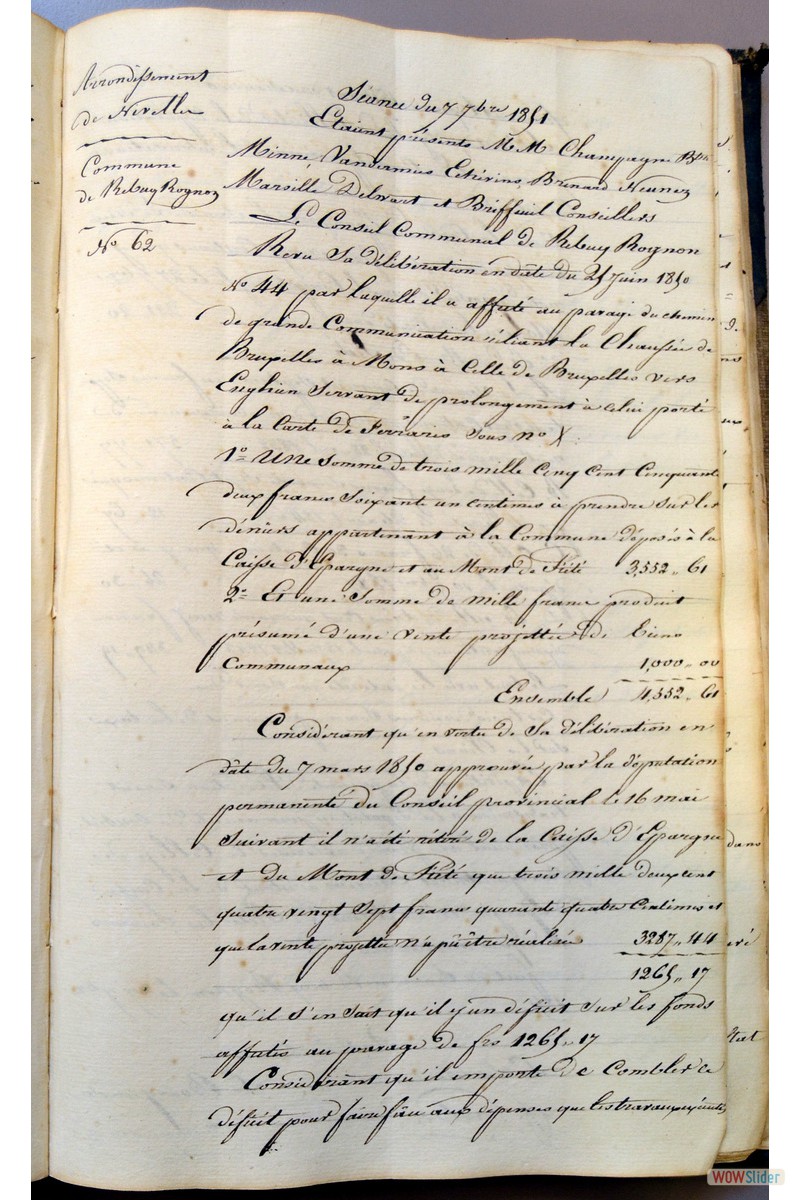 Arrondissement
de Nivelles
Commune
de Rebecq Rognon
No 62
Séance du 7 7bre 1851
Etaient présents M.M Champagne Bre
Minne, Vandermies Echévins, Brenard Neunez
Marsille Delwart et Briffeuil Conseillers
Le Conseil Communal de Rebecq Rognon
Revu sa délibération en date du 25 juin 1850
No 44 par laquelle il a affecté au pavage du chemin
de grande Communication réliant la Chaussée de
Bruxelles à Mons à Celle de Bruxelles vers
Enghien servant de prolongement à celui porté
à la Carte de Ferraris sous no X :
1o Une somme de trois mille Cinq Cent Cinquante
deux francs soixante un centimes à prendre sur les
déniers appartenant à la Commune déposés à la
Caisse d'Epargne et au Mont de Piété 3,552,, 61
2o Et une Somme de mille francs produit
présumé d'une vente projettée de Biens
Communaux 1,000,, 00
Ensemble 4,552,, 61
Considérant qu'en vertu de sa délibération en
date du 7 mars 1850 approuvée par la députation
permanente du Conseil provincial le 16 mai
suivant il n'a été rétiré de la Caisse d'Epargne
et du Mont de Piété que trois mille deux cent
quatre vingt sept francs quarante quatre Centimes et
que la vente projettée n'a pû être réalisée 3287,, 44
1265,, 17
qu'il s'en suit qu'il y un déficit sur les fonds
affectés au pavage de frs 1265,, 17
Considérant qu'il importe de Combler ce
déficit pour faire face aux dépenses que les travaux exécutés